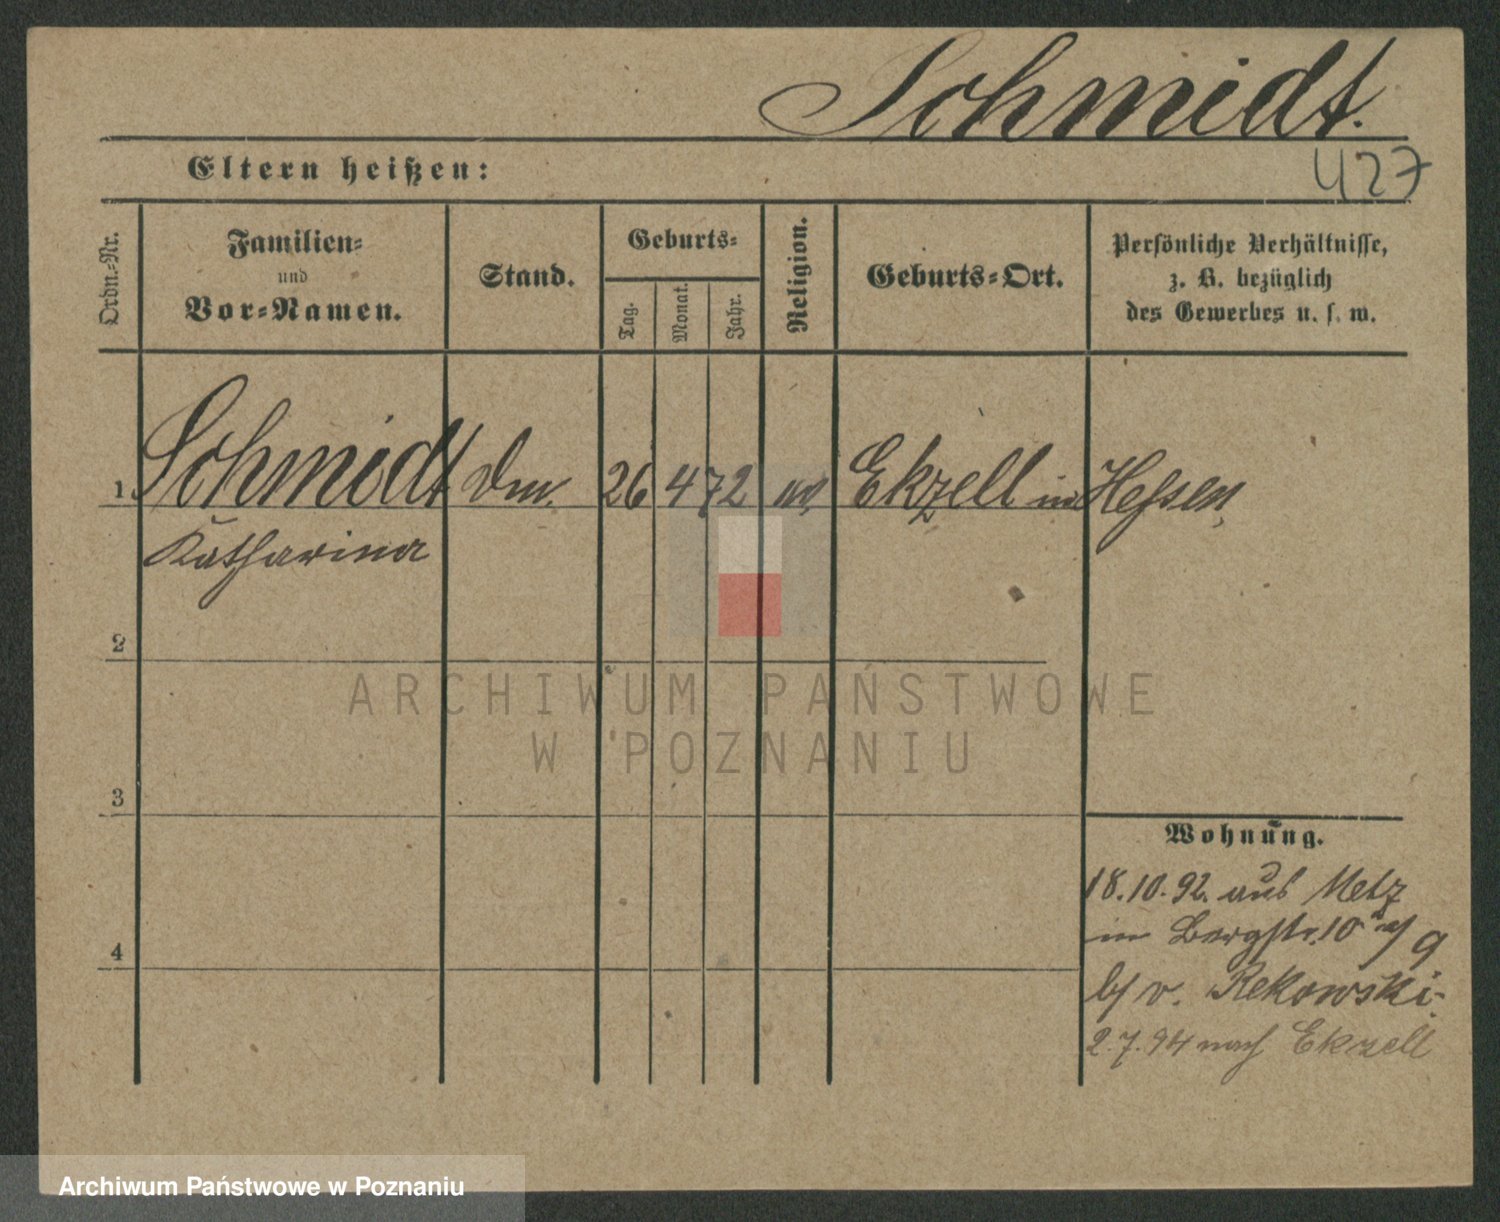 Schmidt.
427
Eltern heißen:
Ordn.-Nr.
Familien-
und
Vor-Namen.
Stand.
Geburts-
Tag.
Monat.
Jahr.
Religion.
Geburts-Ort.
Persönliche Verhältnisse,
z. B. bezüglich
des Gewerbes u. s. w.
1. Schmidt 26 4 72 Ekzell in Hessen,
Katharina
2
3
4
ARCHIWUM PAŃSTWOWE
W POZNANIU
Wohnung.
18.10.92. aus Metz
in Bergstr. 10
b/ v. Rekowski.
2.7.94 nach Ekzell
Archiwum Państwowe w Poznaniu